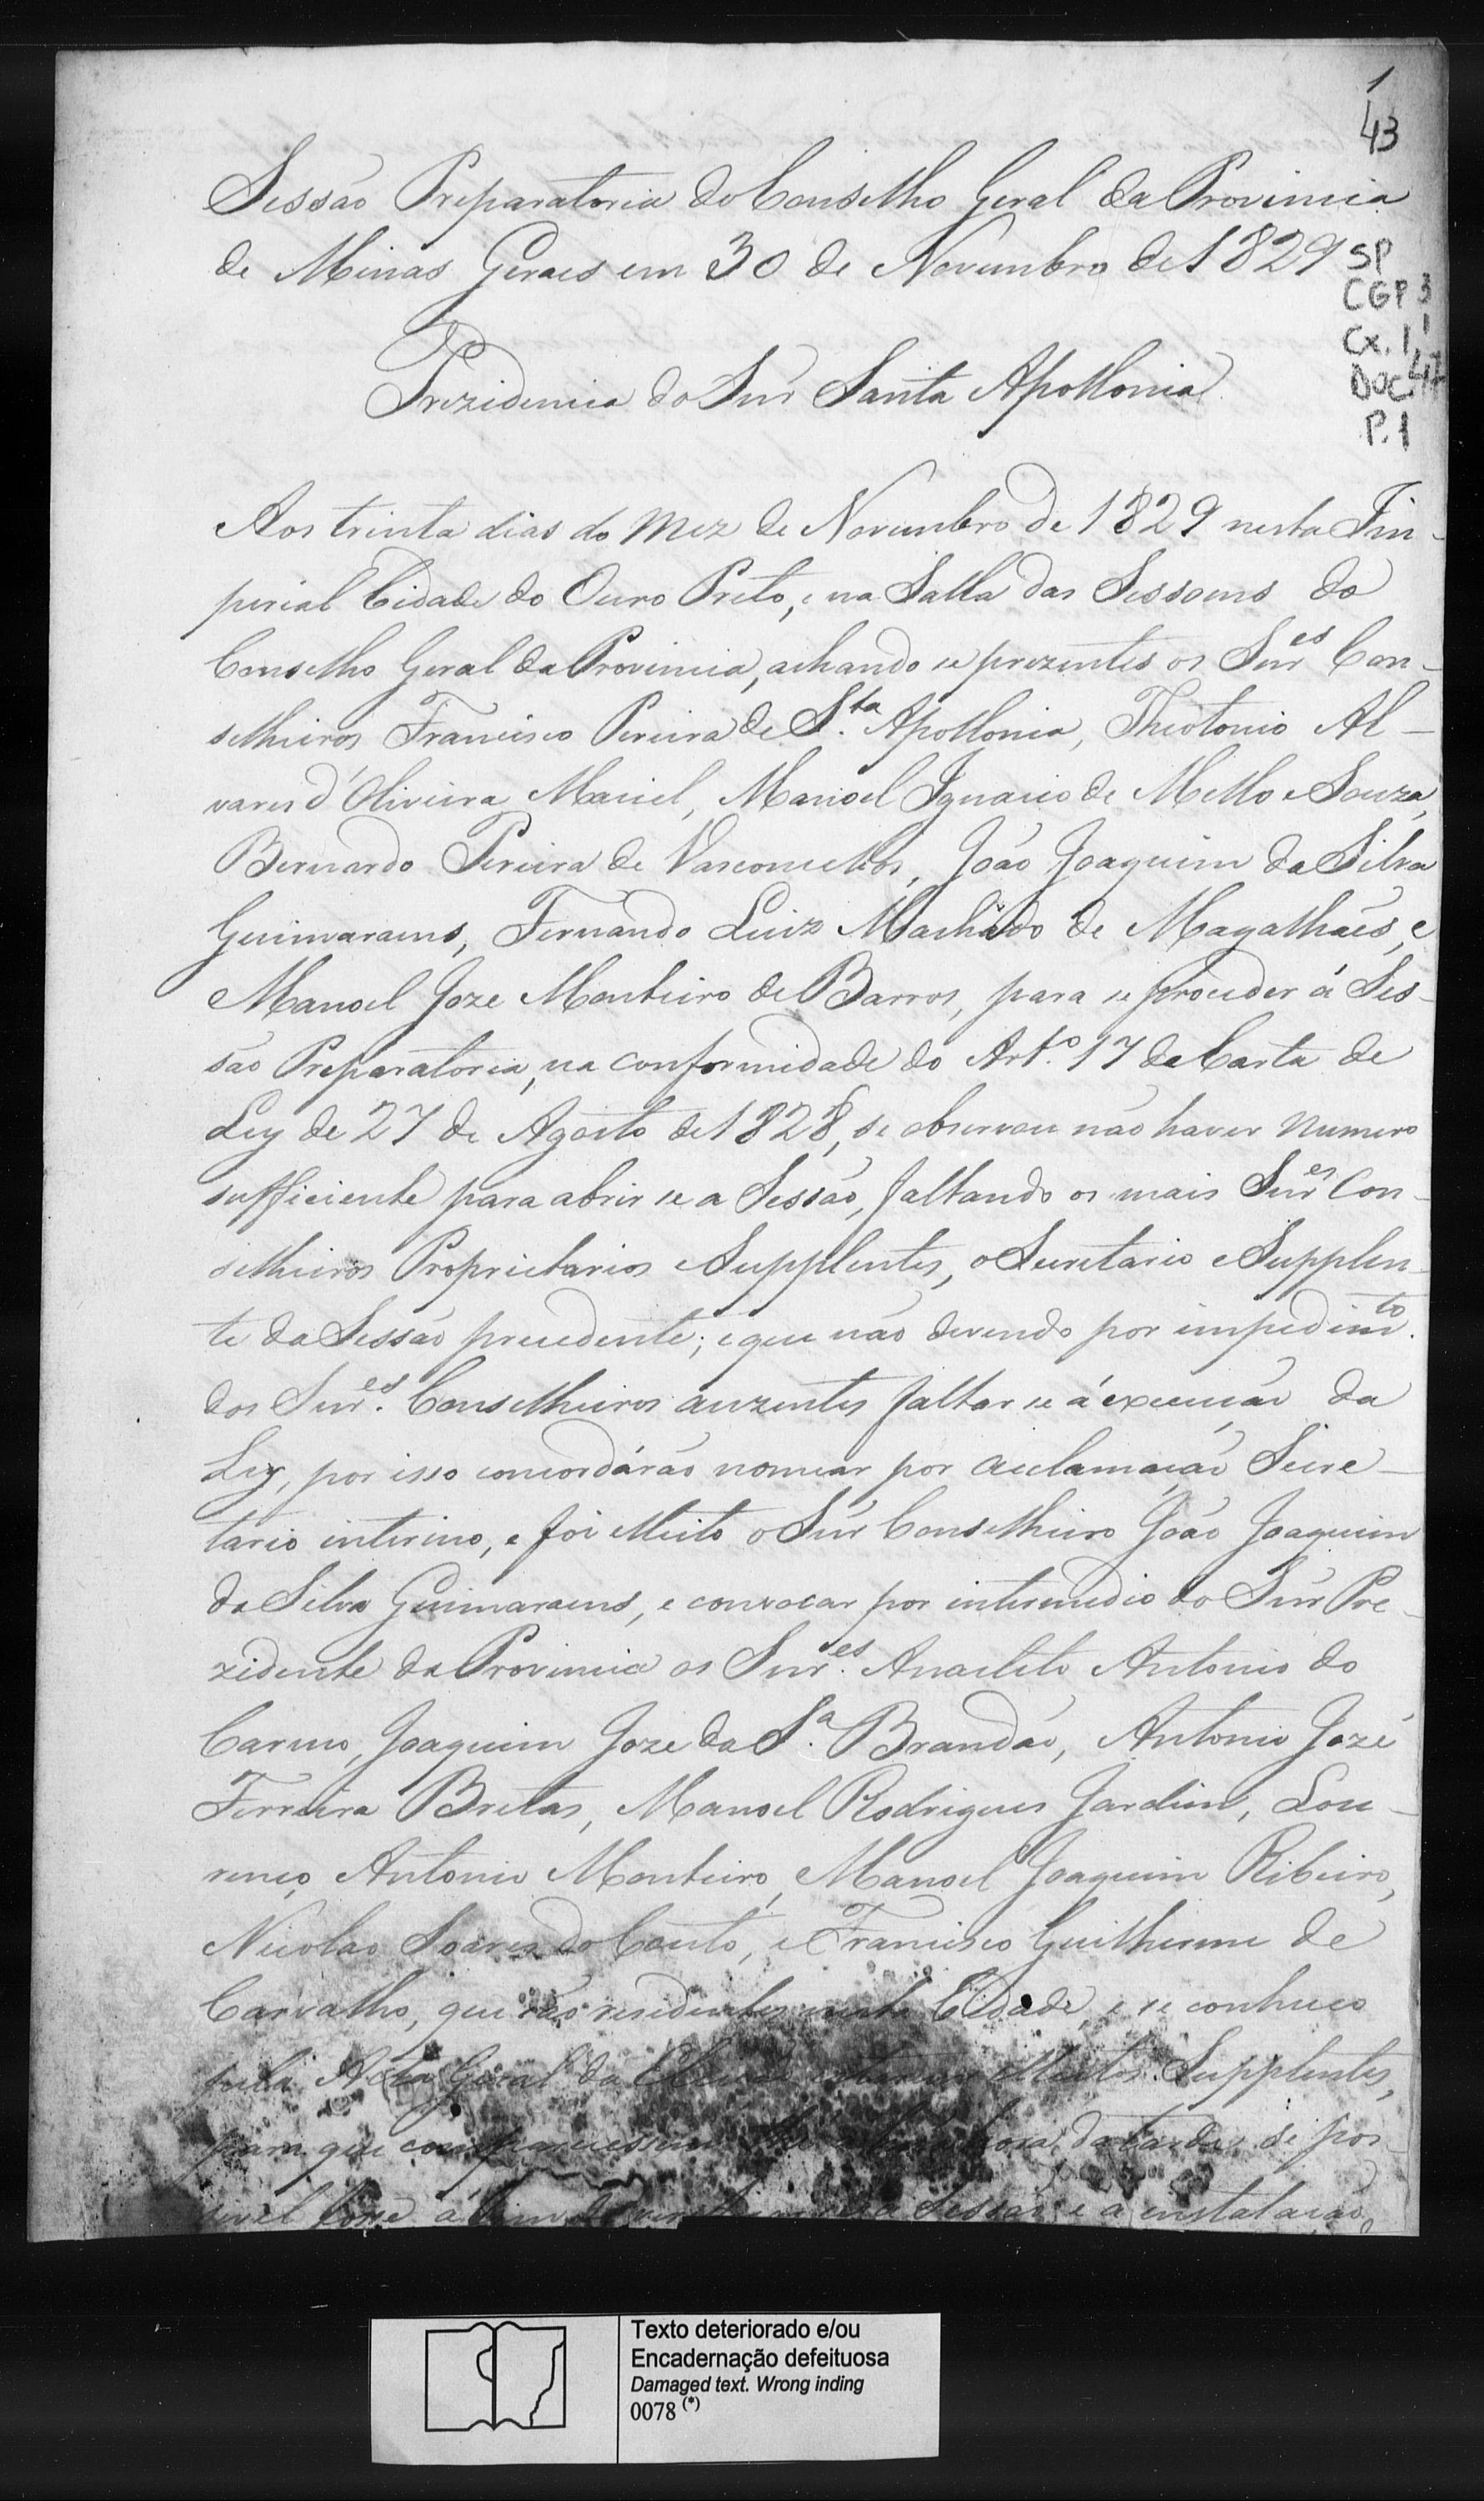 1
43
Sessão Preparatoria do Conselho Geral da Provincia
de Minas Geraes em 30 de Novembro de 1829
SP
CGP 3
Cx. 1,1
DOC. 47
P. 1
Prezidencia do Snr Santa Apollonia
Aos trinta dias do Mez de Novembro de 1829 nesta Im-
perial Cidade do Ouro Preto, e na Salla das Sessoens do
Conselho Geral da Provincia, achando se prezentes os Snres Con-
selheiros Francisco Pereira de Sta. Apollonia, Theotonio Al-
vares d'Oliveira Maciel, Manoel Ignacio de Mello e Souza,
Bernardo Pereira de Vasconcellos, João Joaquim da Silva
Guimaraens, Fernando Luiz Machado de Magalhães, e
Manoel Joze Monteiro de Barros, para se proceder á Ses-
são Preparatoria, na conformidade do Arto. 17 da Carta de
Ley de 27 de Agosto de 1828, se observou não haver numero
sufficiente para abrir se a Sessão, faltando os mais Snres Con-
selheiros Proprietarios e Supplentes, o Secretario e Supplen-
te da Sessão precedente; e que não devendo por impedimto.
dos Snres. Conselheiros auzentes faltar se á execução da
Ley, por isso concordárão nomear por acclamação Secre-
tario interino, e foi elleito o Snr Conselheiro João Joaquim
da Silva Guimaraens, e convocar por intermedio do Snr Pre-
zidente da Provincia os Snres. Anacleto Antonio do
Carmo, Joaquim Joze da Sa. Brandão, Antonio Jozé
Ferreira Bretas, Manoel Rodrigues Jardim, Lou-
renço Antonio Monteiro, Manoel Joaquim Ribeiro,
Nicolao Soares do Couto, e Francisco Guilherme de
Carvalho, que são residentes nesta Cidade, e se conheceo
pela Acta Geral da elleitos Supplentes,
para que comparecessem hora da tarde, se pos-
sivel fosse, a Sessão e a instalação
Texto deteriorado e/ou
Encadernação defeituosa
Damaged text. Wrong inding
0078 (*)